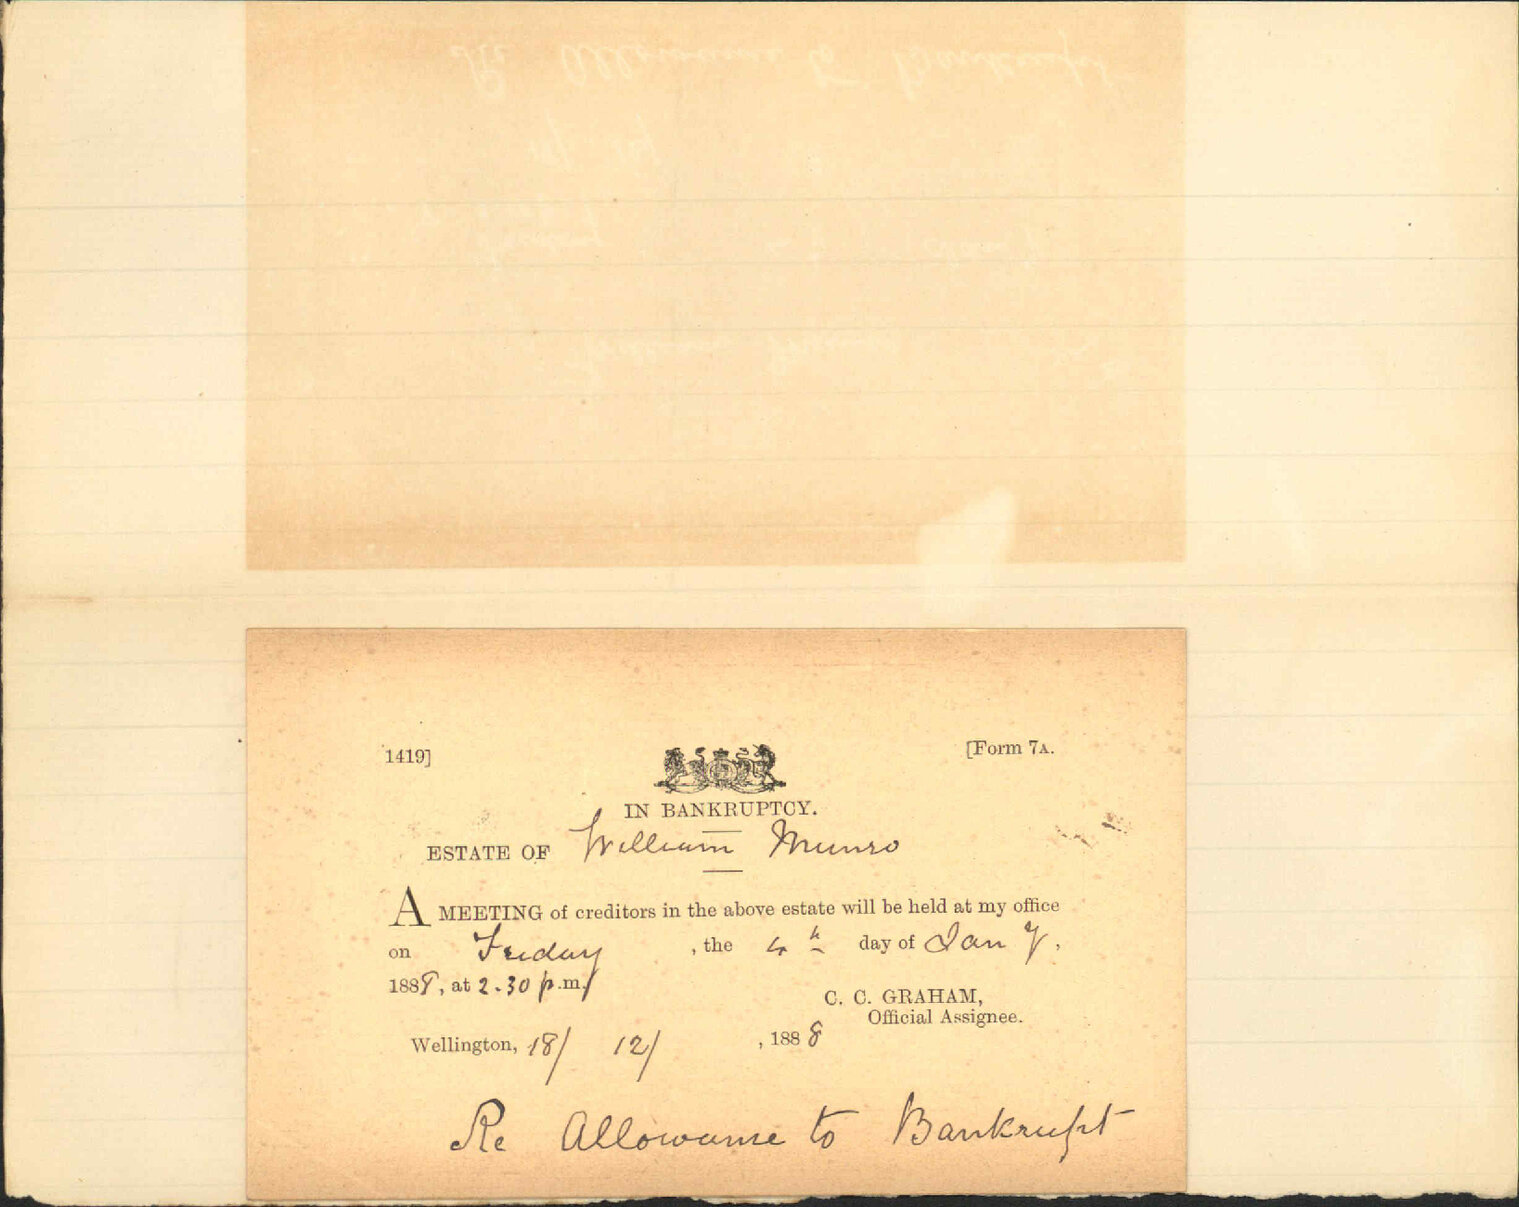 1419]
[Form 7A.
IN BANKRUPTCY.
ESTATE OF William Munro
A MEETING of creditors in the above estate will be held at my office
on Friday, the 4th day of Jany,
1888, at 2.30 p.m.
C. C. GRAHAM,
Official Assignee.
Wellington, 18/ 12/, 1888
Re Allowance to Bankrupt